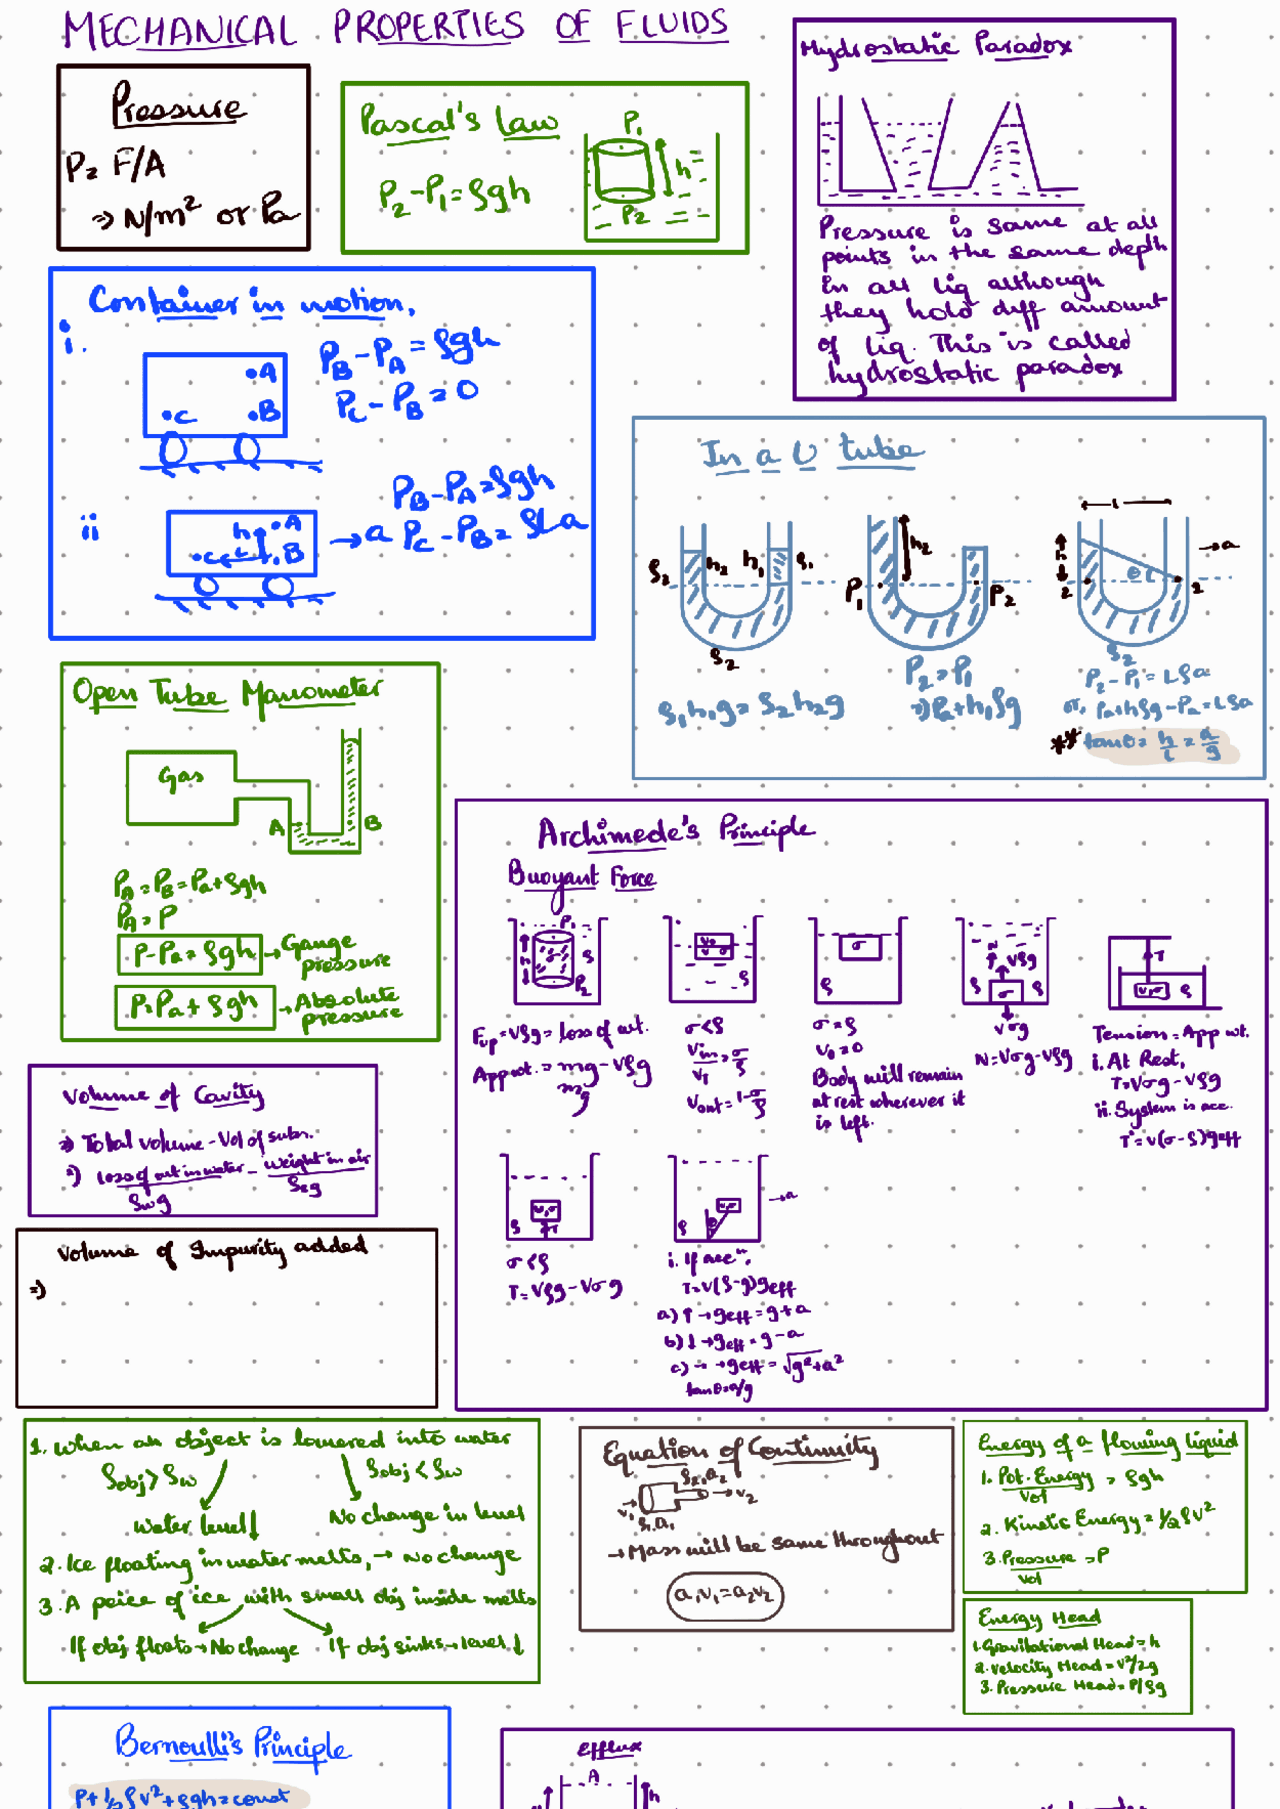 MECHANICAL PROPERTIES OF FLUIDS
Pressure
P = F/A
⇒ N/m² or Pa
Pascal's Law
P₂-P₁ = ρgh
P₁
h
P₂
Hydrostatic Paradox
Pressure is same at all
points in the same depth
in all liq although
they hold diff amount
of liq. This is called
hydrostatic paradox
Container in motion,
i.
•A
•C •B
P_B - P_A = ρgh
P_C - P_B = 0
ii
h A
C L B
→a
P_B - P_A = ρgh
P_C - P_B = ρLa
In a U tube
ρ₂ h₂ h₁ ρ₁
ρ₂
ρ₁h₁g = ρ₂h₂g
h₂
P₁ P₂
P₂ = P₁
⇒ Pa + h₁ρg
L
h θ →a
2 2
ρ₂
P₂ - P₁ = Lρa
or, Pa+hρg - Pa = Lρa
** tanθ = h/L = a/g
Open Tube Manometer
Gas
A B
P_A = P_B = Pa + ρgh
P_A = P
P-Pa = ρgh → Gauge
pressure
P = Pa + ρgh → Absolute
pressure
Archimede's Principle
Buoyant Force
P₁
h ρ
P₂
F_up = Vρg = loss of wt.
App wt. = mg - Vρg
mg
σ < ρ
Vin/V_T = σ/ρ
Vout = 1-σ/ρ
σ = ρ
V₀ = 0
Body will remain
at rest wherever it
is left.
N Vρg
ρ σ ρ
Vσg
N = Vσg - Vρg
T
V,σ ρ
Tension = App wt.
i. At Rest,
T = Vσg - Vρg
ii. System is acc.
T = V(σ - ρ)geff
V,σ
ρ T
σ < ρ
T = Vρg - Vσg
V,σ
ρ θ →a
i. If accⁿ,
T = V(ρ-g)geff
a) ↑ → geff = g + a
b) ↓ → geff = g - a
c) → → geff = √g²+a²
tanθ = a/g
Volume of Cavity
⇒ Total volume - Vol of subs.
⇒) loss of wt in water/ρwg - weight in air/ρsg
Volume of Impurity added
⇒)
1. When an object is lowered into water
ρobj > ρw ρobj < ρw
Water level ↓ No change in level
2. Ice floating in water melts, → No change
3. A peice of ice with small obj inside melts
If obj floats → No change If obj sinks → level ↓
Equation of Continuity
ρ₂,a₂
v₁ → → v₂
ρ₁,a₁
→ Mass will be same throughout
a₁v₁ = a₂v₂
Energy of a flowing liquid
1. Pot. Energy/Vol = ρgh
2. Kinetic Energy = 1/2 ρv²
3. Pressure/Vol = P
Energy Head
1. Gravitational Head = h
2. Velocity Head = v²/2g
3. Pressure Head = P/ρg
Bernoulli's Principle
P + 1/2 ρv² + ρgh = const
Efflux
A
h